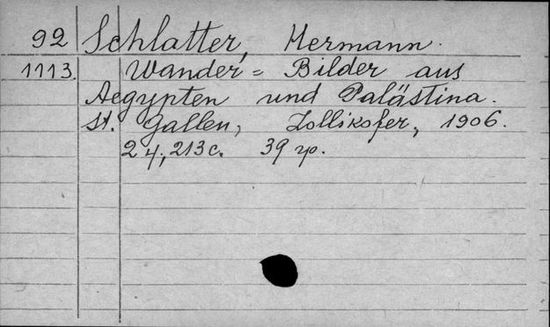 92 Schlatter, Hermann.
1113. Wander = Bilder aus
Aegypten und Palästina.
St. Gallen, Zollikofer, 1906.
2 4, 213 c. 39 ир.